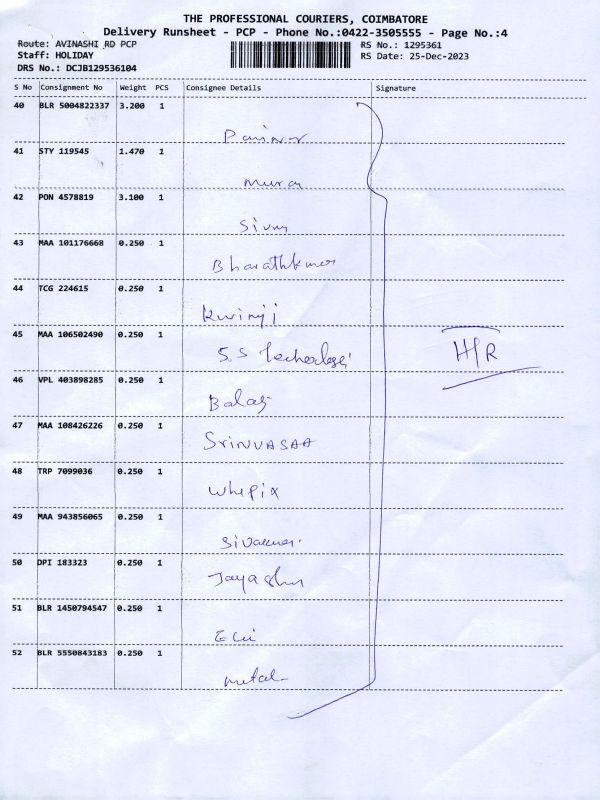 THE PROFESSIONAL COURIERS, COIMBATORE
Delivery Runsheet - PCP - Phone No.:0422-3505555 - Page No.:4
Route: AVINASHI RD PCP
Staff: HOLIDAY
DRS No.: DCJB129536104
RS No.: 1295361
RS Date: 25-Dec-2023
S No Consignment No Weight PCS Consignee Details Signature
40 BLR 5004822337 3.200 1
41 STY 119545 1.470 1
42 PON 4578819 3.100 1
43 MAA 101176668 0.250 1
Bharathkumar
44 TCG 224615 0.250 1
45 MAA 106502490 0.250 1
S.S
H/R
46 VPL 403898285 0.250 1
Balaji
47 MAA 108426226 0.250 1
SrinVASAA
48 TRP 7099036 0.250 1
Whepix
49 MAA 943856065 0.250 1
50 DPI 183323 0.250 1
51 BLR 1450794547 0.250 1
52 BLR 5550843183 0.250 1
metal